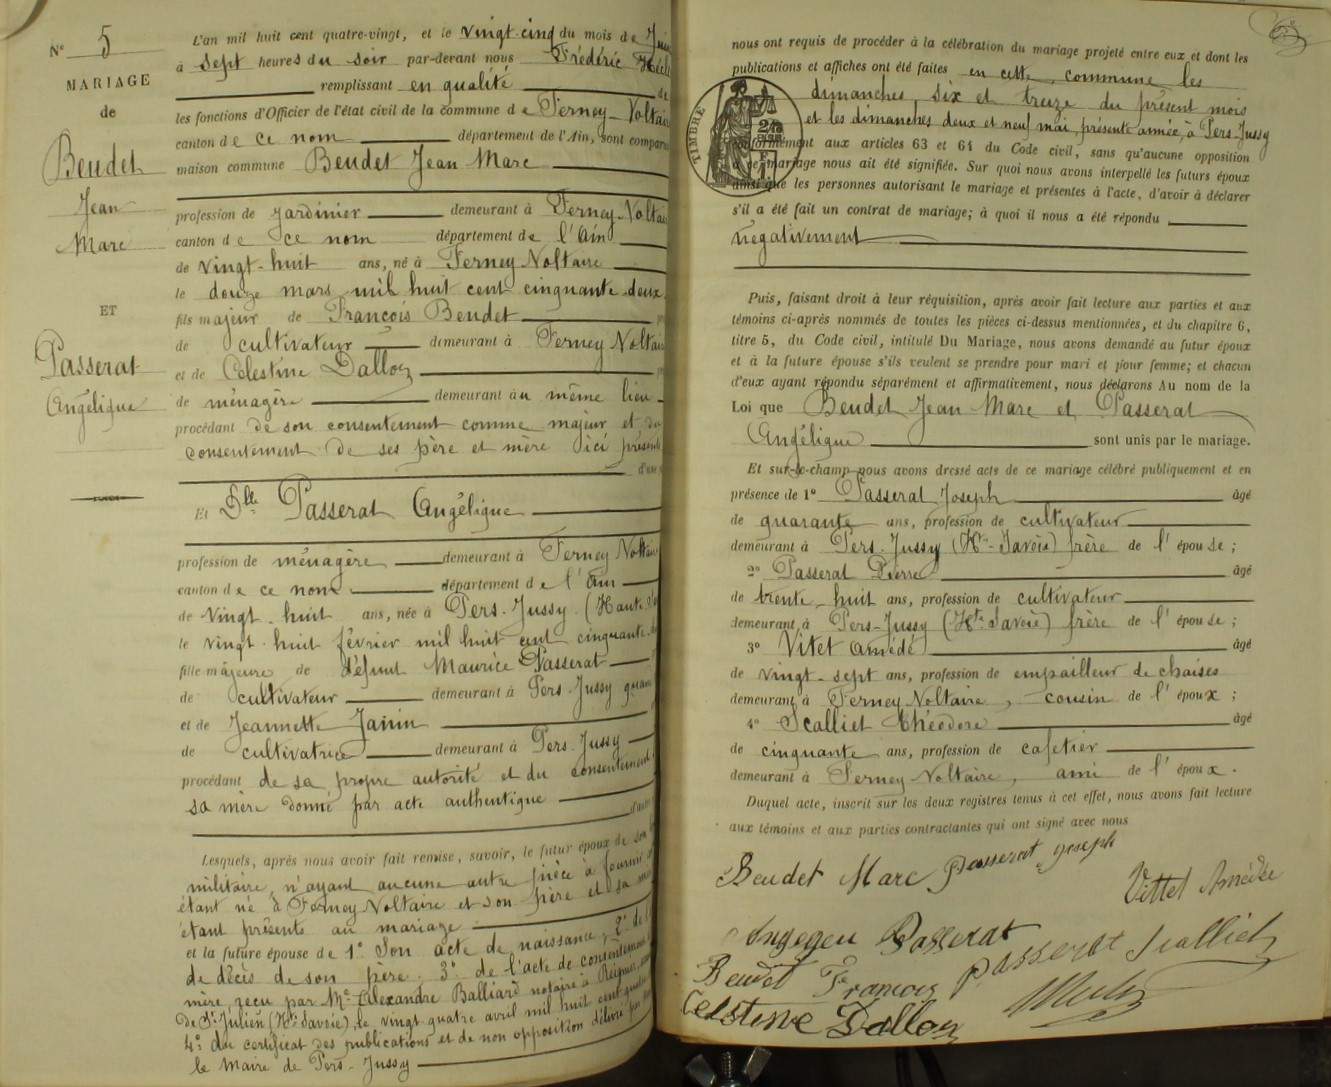 N° 5
MARIAGE
de
Beudet
Jean
Marc
ET
Passerat
Angélique
L'an mil huit cent quatre-vingt, et le vingt-cinq du mois de Juin
à sept heures du soir par-devant nous Frédéric
remplissant en qualité de
les fonctions d'Officier de l'état civil de la commune de Ferney-Voltaire
canton de ce nom département de l'Ain, sont comparu
maison commune Beudet Jean Marc
profession de jardinier demeurant à Ferney-Voltai
canton de ce nom département de l'Ain
de vingt-huit ans, né à Ferney Voltaire
le douze mars mil huit cent cinquante-deux
fils majeur de François Beudet
de cultivateur demeurant à Ferney Voltai
et de Celestine Dalloz
de ménagère demeurant au même lieu
procédant de son consentement comme majeur et du
consentement de ses père et mère ici présents
d'une
Et Dlle Passerat Angélique
profession de ménagère demeurant à Ferney Voltai
canton de ce nom département de l'Ain
de vingt-huit ans, née à Pers-Jussy (Haute
le vingt-huit février mil huit cent cinquante
fille majeure de défunt Maurice Passerat
de cultivateur demeurant à Pers Jussy quan
et de Jeannette Janin
de cultivatrice demeurant à Pers-Jussy
procédant de sa propre autorité et du consentement
sa mère donné par acte authentique
d'autre
Lesquels, après nous avoir fait remise, savoir, le futur époux de son
militaire, n'ayant aucune autre pièce à fournir
étant né à Ferney Voltaire et son père et sa
étant présents au mariage
et la future épouse de 1° Son acte de naissance, 2° de
de décès de son père. 3° de l'acte de consentement
mère reçu par Me Alexandre Balliard notaire à Reignier
de St Julien (Hte Savoie) le vingt quatre avril mil huit cent quatre
4° du certificat des publications et de non opposition délivré par
le Maire de Pers-Jussy
nous ont requis de procéder à la célébration du mariage projeté entre eux et dont les
publications et affiches ont été faites en cette commune les
dimanches, six et treize du présent mois
et les dimanches deux et neuf mai, présente année, à Pers-Jussy
TIMBRE
conformément aux articles 63 et 64 du Code civil, sans qu'aucune opposition
à ce mariage nous ait été signifiée. Sur quoi nous avons interpellé les futurs époux
ainsi que les personnes autorisant le mariage et présentes à l'acte, d'avoir à déclarer
s'il a été fait un contrat de mariage; à quoi il nous a été répondu
négativement
Puis, faisant droit à leur réquisition, après avoir fait lecture aux parties et aux
témoins ci-après nommés de toutes les pièces ci-dessus mentionnées, et du chapitre 6,
titre 5, du Code civil, intitulé Du Mariage, nous avons demandé au futur époux
et à la future épouse s'ils veulent se prendre pour mari et pour femme; et chacun
d'eux ayant répondu séparément et affirmativement, nous déclarons Au nom de la
Loi que Beudet Jean Marc et Passerat
Angélique sont unis par le mariage.
Et sur-le-champ nous avons dressé acte de ce mariage célébré publiquement et en
présence de 1° Passerat Joseph âgé
de quarante ans, profession de cultivateur
demeurant à Pers-Jussy (Hte-Savoie) frère de l'épouse;
2° Passerat Pierre âgé
de trente-huit ans, profession de cultivateur
demeurant à Pers-Jussy (Hte Savoie) frère de l'épouse;
3° Vitet Amédé âgé
de vingt-sept ans, profession de empailleur de chaises
demeurant à Ferney Voltaire, cousin de l'époux;
4° Scalliet Théodore âgé
de cinquante ans, profession de cafetier
demeurant à Ferney-Voltaire, ami de l'époux.
Duquel acte, inscrit sur les deux registres tenus à cet effet, nous avons fait lecture
aux témoins et aux parties contractantes qui ont signé avec nous
Beudet Marc Passerat joseph
Vittet Amédée
Passerat
Passerat Scalliet
Beudet François
Celestine Dalloz